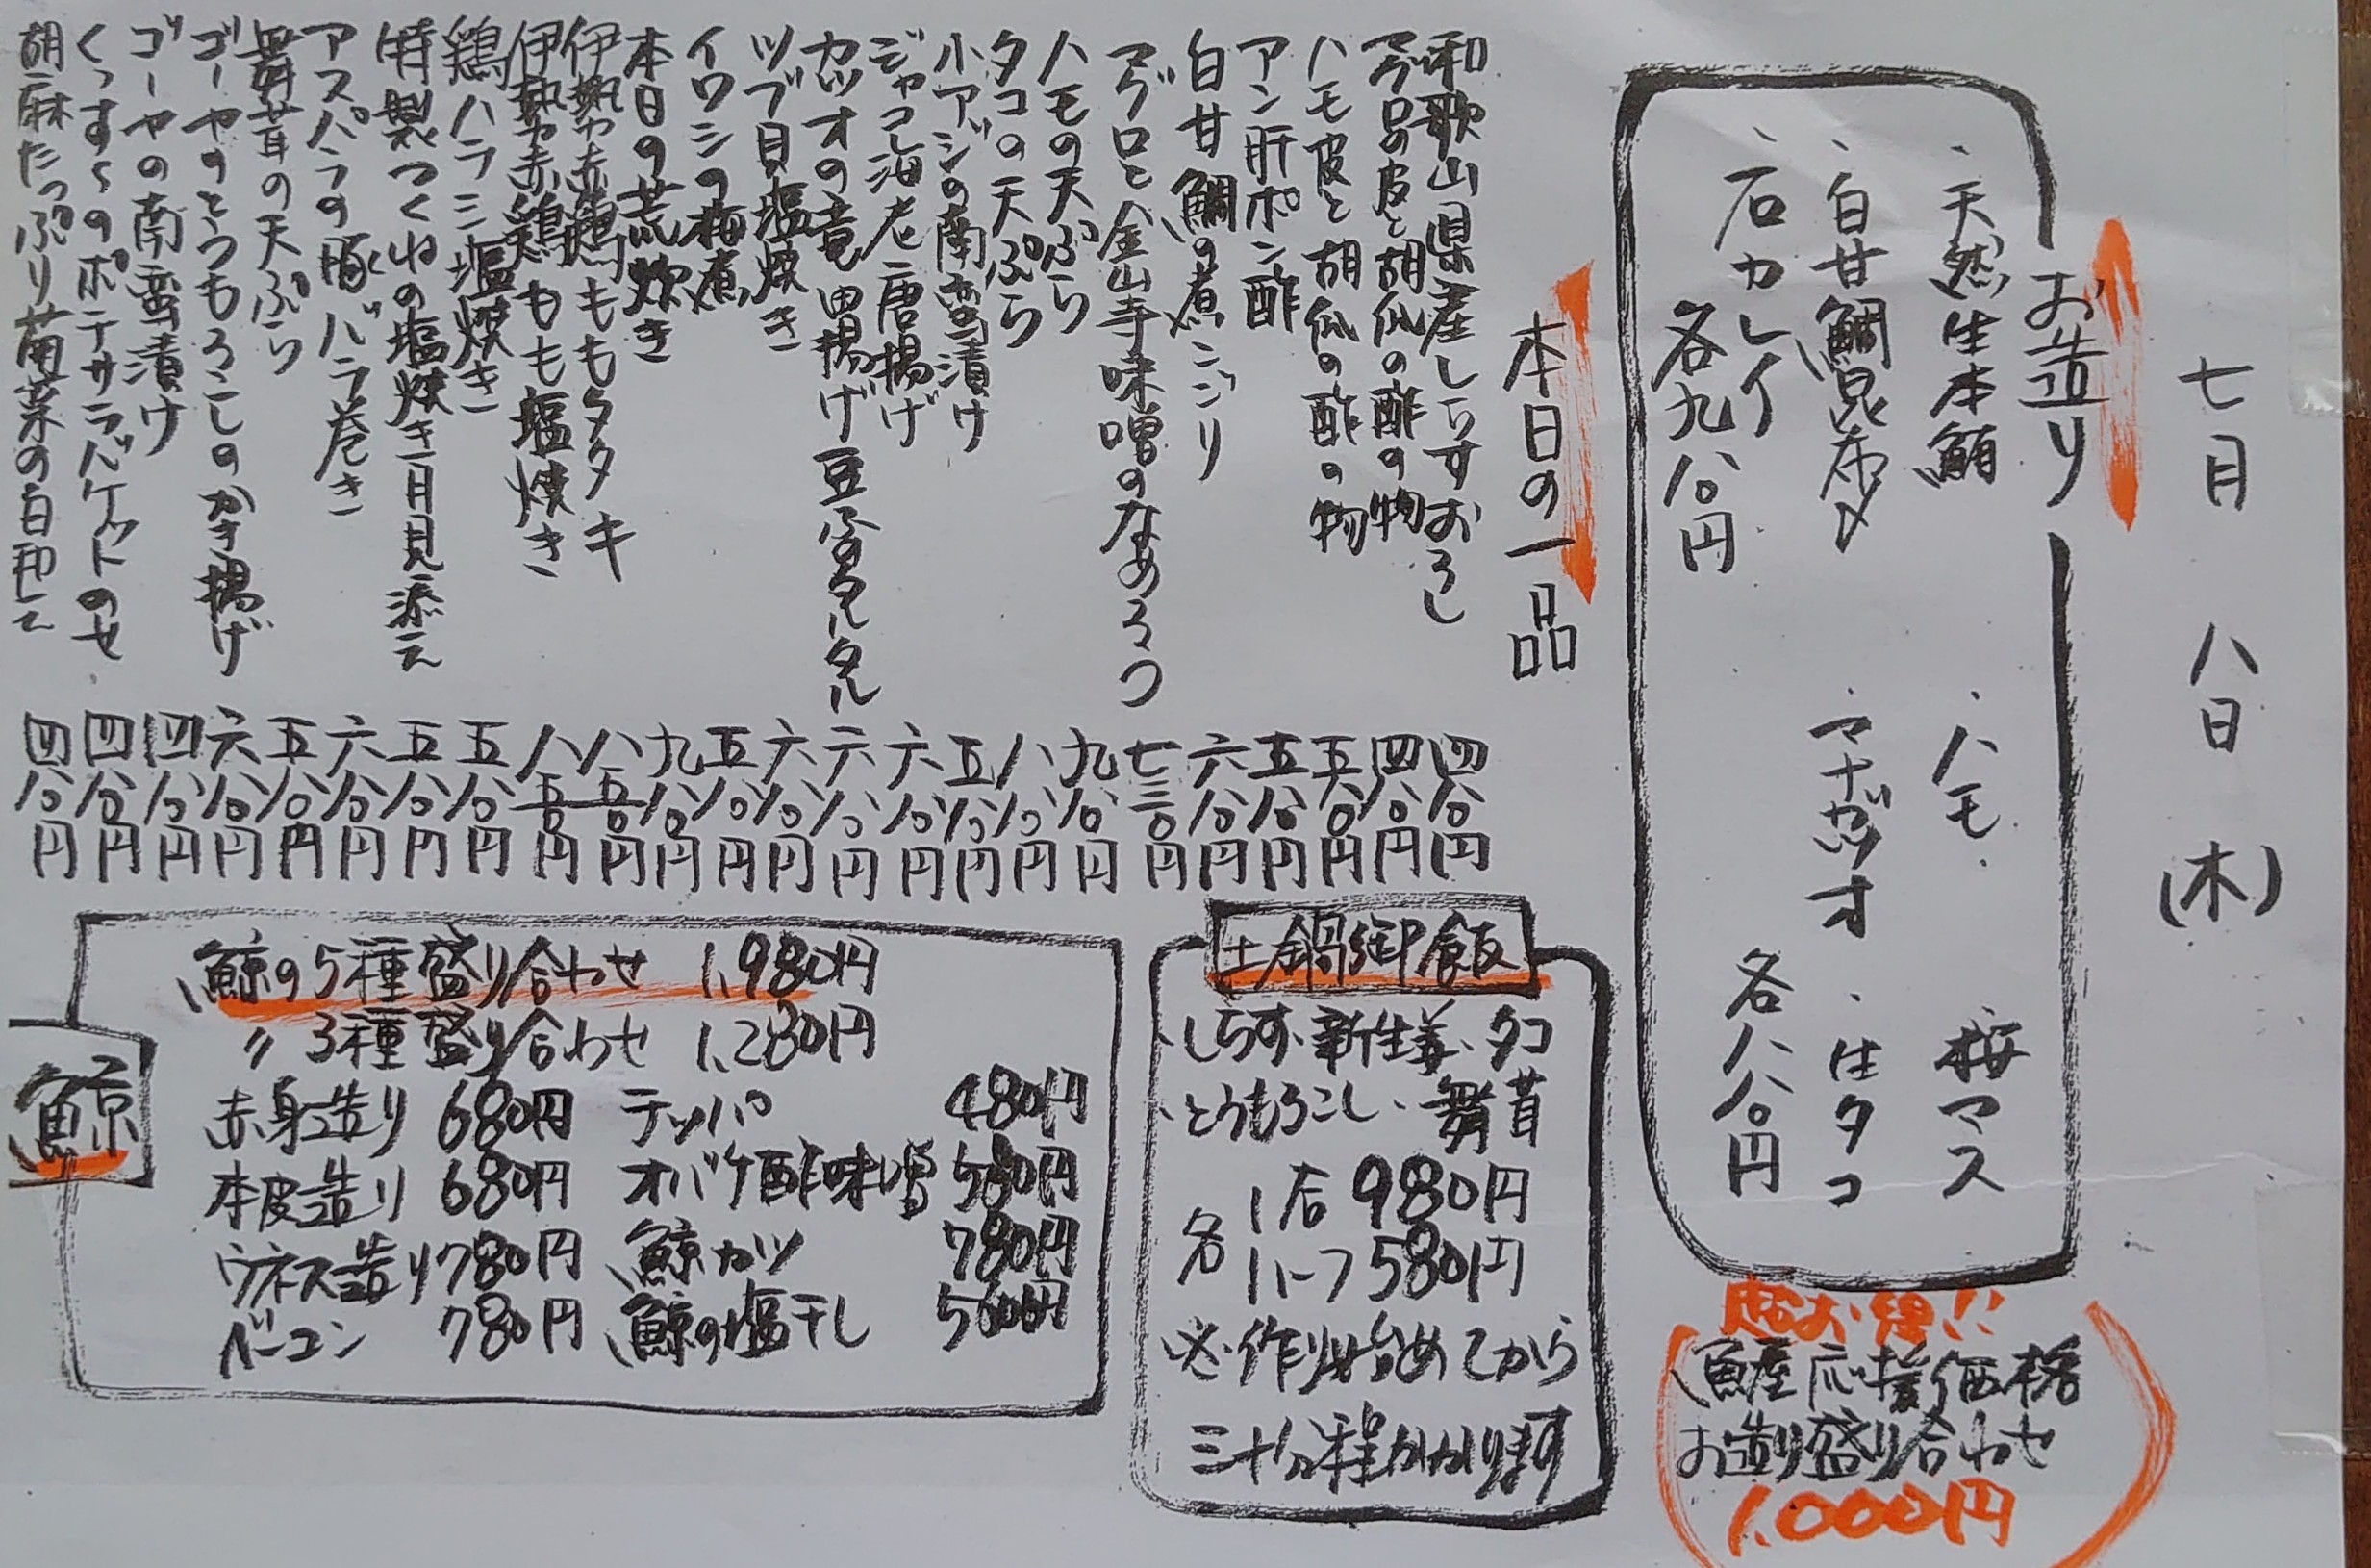 七月八日(木)
お造り
・天然生本鮪 ・ハモ 桜マス
・白甘鯛昆布〆 ・マナガツオ ・生タコ
・石カレイ
各九八〇円 各八八〇円
超お得!!
応援価格
お造り盛り合わせ
1,000円
本日の一品
和歌山県産しらすおろし 四八〇円
マグロの皮と胡瓜の酢の物 四八〇円
ハモ皮と胡瓜の酢の物 五八〇円
アン肝ポン酢 五八〇円
白甘鯛の煮こごり 六八〇円
マグロと金山寺味噌のなめろう 七三〇円
ハモの天ぷら 九八〇円
タコの天ぷら 八八〇円
小アジの南蛮漬け 五八〇円
ジャコ海老唐揚げ 六八〇円
カツオの竜田揚げ豆ふのタルタル 六八〇円
ツブ貝塩焼き 六八〇円
イワシの梅煮 五八〇円
本日の荒炊き 九八〇円
伊勢赤鶏ももタタキ 八五〇円
伊勢赤鶏もも塩焼き 八五〇円
鶏ハラミ塩焼き 五八〇円
特製つくねの塩焼き月見添え 五八〇円
アスパラの豚バラ巻き 六八〇円
舞茸の天ぷら 五八〇円
ゴーヤのとうもろこしのかき揚げ 六八〇円
ゴーヤの南蛮漬け 四八〇円
くんすぅのポテサラバケットのせ 四八〇円
胡麻たっぷり菊菜の白和え 四八〇円
土鍋御飯
・しらす・新生姜・タコ
・とうもろこし・舞茸
各 1合 980円
ハーフ 580円
※作り始めてから
三十分程かかります
鯨
鯨の5種盛り合わせ 1,980円
〃3種盛り合わせ 1,280円
赤身造り 680円 テッパ 480円
本皮造り 680円 オバケ酢味噌 580円
ウネス造り 780円 鯨カツ 780円
ベーコン 780円 鯨の塩干し 500円